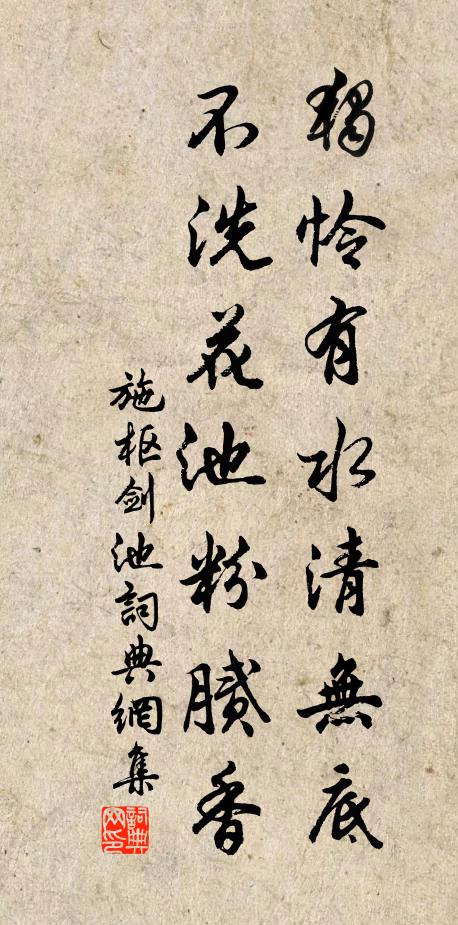 獨憐有水清無底
不洗花池粉膩香
施枢剑池詞典網集
詞典
网印